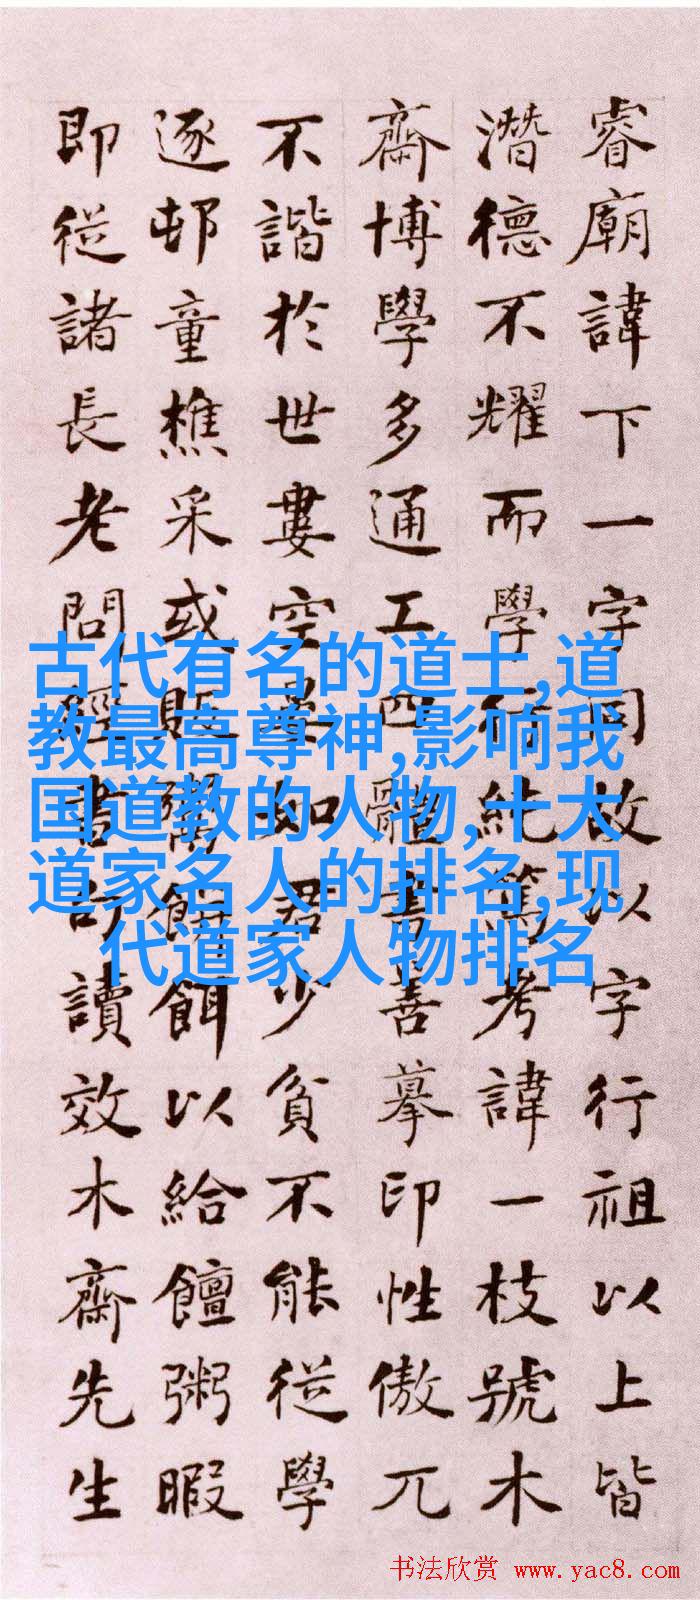 睿廟諱下一字同故以字行祖以上皆
潛德不耀而學行純篤考諱一枝號木
齋博學多通工四體書善摹印性傲兀
不諧於世婁空晏如君少貧不能從學
逐邨童樵采或販鬻餅餌以給饘粥暇
即從諸長老問經書句讀效木齋先生
古代有名的道士,道
教最高尊神,影响我
国道教的人物,十大
道家名人的排名,现
代道家人物排名
书法欣赏 www.yac8.com